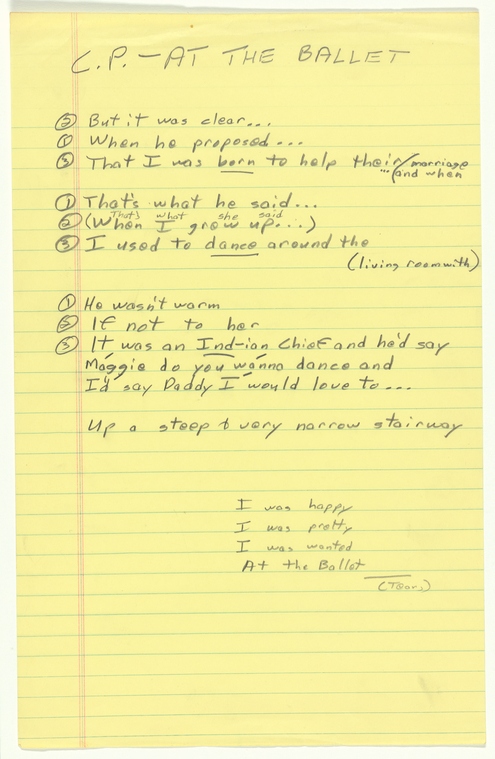 C.P. - AT THE BALLET
② But it was clear...
① When he proposed...
③ That I was born to help their/marriage
...(and when
① That's what he said...
That's what she said
② (When I grow up...)
③ I used to dance around the
(living room with)
① He wasn't warm
② If not to her
③ It was an Ind-ian Chief and he'd say
Maggie do you wanna dance and
I'd say Daddy I would love to...
Up a steep & very narrow stairway
I was happy
I was pretty
I was wanted
At the Ballet